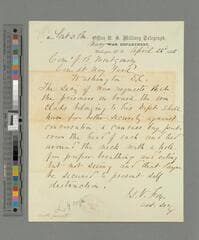 Office U. S. Military Telegraph,
Navy WAR DEPARTMENT,
April 22d 1865
Com. J. B. Montgomery
Comdt Navy Yard
Washington D.C.
The Secy of War requests that
the prisoners on board the iron
clads belonging to his Dept shall
have for better security against
conversation a canvass bag put
over the head of each and tied
around the neck with a hole
for proper breathing and eating
but not seeing and that Payne
be secured to prevent self
destruction.
G. V. Fox
Asst Secy